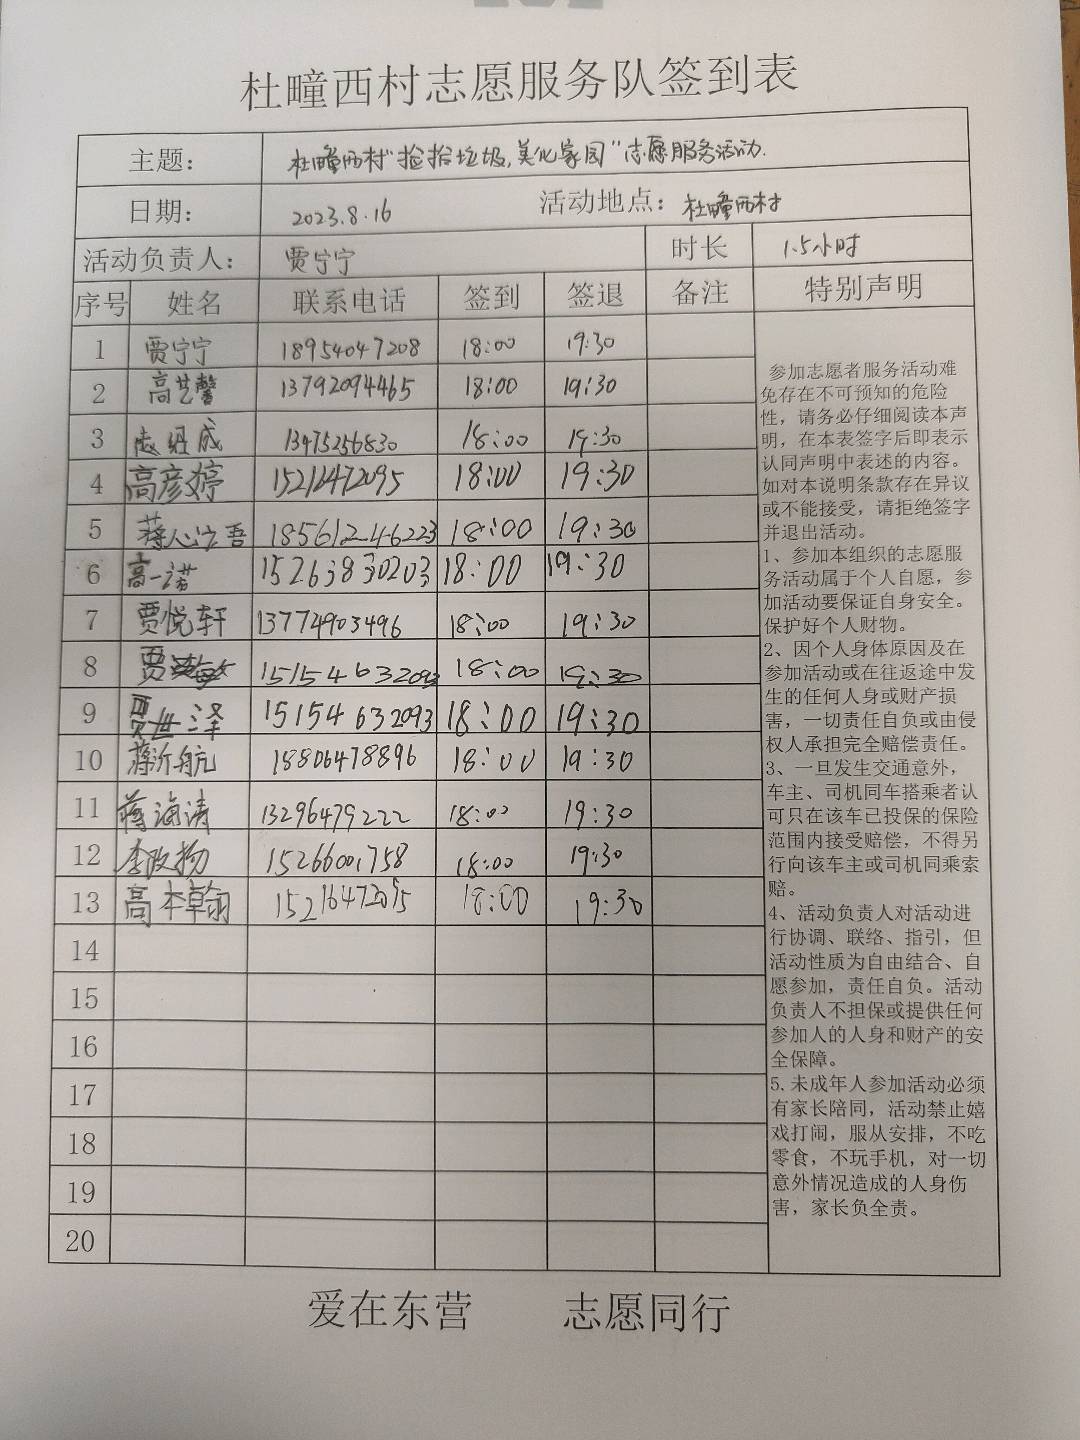 杜疃西村志愿服务队签到表
主题： 杜疃西村“捡拾垃圾,美化家园”志愿服务活动.
日期： 2023.8.16 活动地点：杜疃西村
活动负责人： 贾宁宁 时长 1.5小时
序号 姓名 联系电话 签到 签退 备注 特别声明
1 贾宁宁 18954047208 18:00 19:30
2 高艺馨 13792094465 18:00 19:30
3 13475256830 18:00 19:30
4 高彦婷 18:00 19:30
5 18561246223 18:00 19:30
6 高一诺 15263830203 18:00 19:30
7 贾悦轩 13774903496 18:00 19:30
8 贾 15154632093 18:00 19:30
9 贾世泽 15154632093 18:00 19:30
10 蒋沂航 18806478896 18:00 19:30
11 蒋海涛 13296479222 18:00 19:30
12 李政扬 15266001758 18:00 19:30
13 高本翰 15216472095 18:00 19:30
14
15
16
17
18
19
20
参加志愿者服务活动难
免存在不可预知的危险
性，请务必仔细阅读本声
明，在本表签字后即表示
认同声明中表述的内容。
如对本说明条款存在异议
或不能接受，请拒绝签字
并退出活动。
1、参加本组织的志愿服
务活动属于个人自愿，参
加活动要保证自身安全。
保护好个人财物。
2、因个人身体原因及在
参加活动或在往返途中发
生的任何人身或财产损
害，一切责任自负或由侵
权人承担完全赔偿责任。
3、一旦发生交通意外，
车主、司机同车搭乘者认
可只在该车已投保的保险
范围内接受赔偿，不得另
行向该车主或司机同乘索
赔。
4、活动负责人对活动进
行协调、联络、指引，但
活动性质为自由结合、自
愿参加，责任自负。活动
负责人不担保或提供任何
参加人的人身和财产的安
全保障。
5.未成年人参加活动必须
有家长陪同，活动禁止嬉
戏打闹，服从安排，不吃
零食，不玩手机，对一切
意外情况造成的人身伤
害，家长负全责。
爱在东营 志愿同行